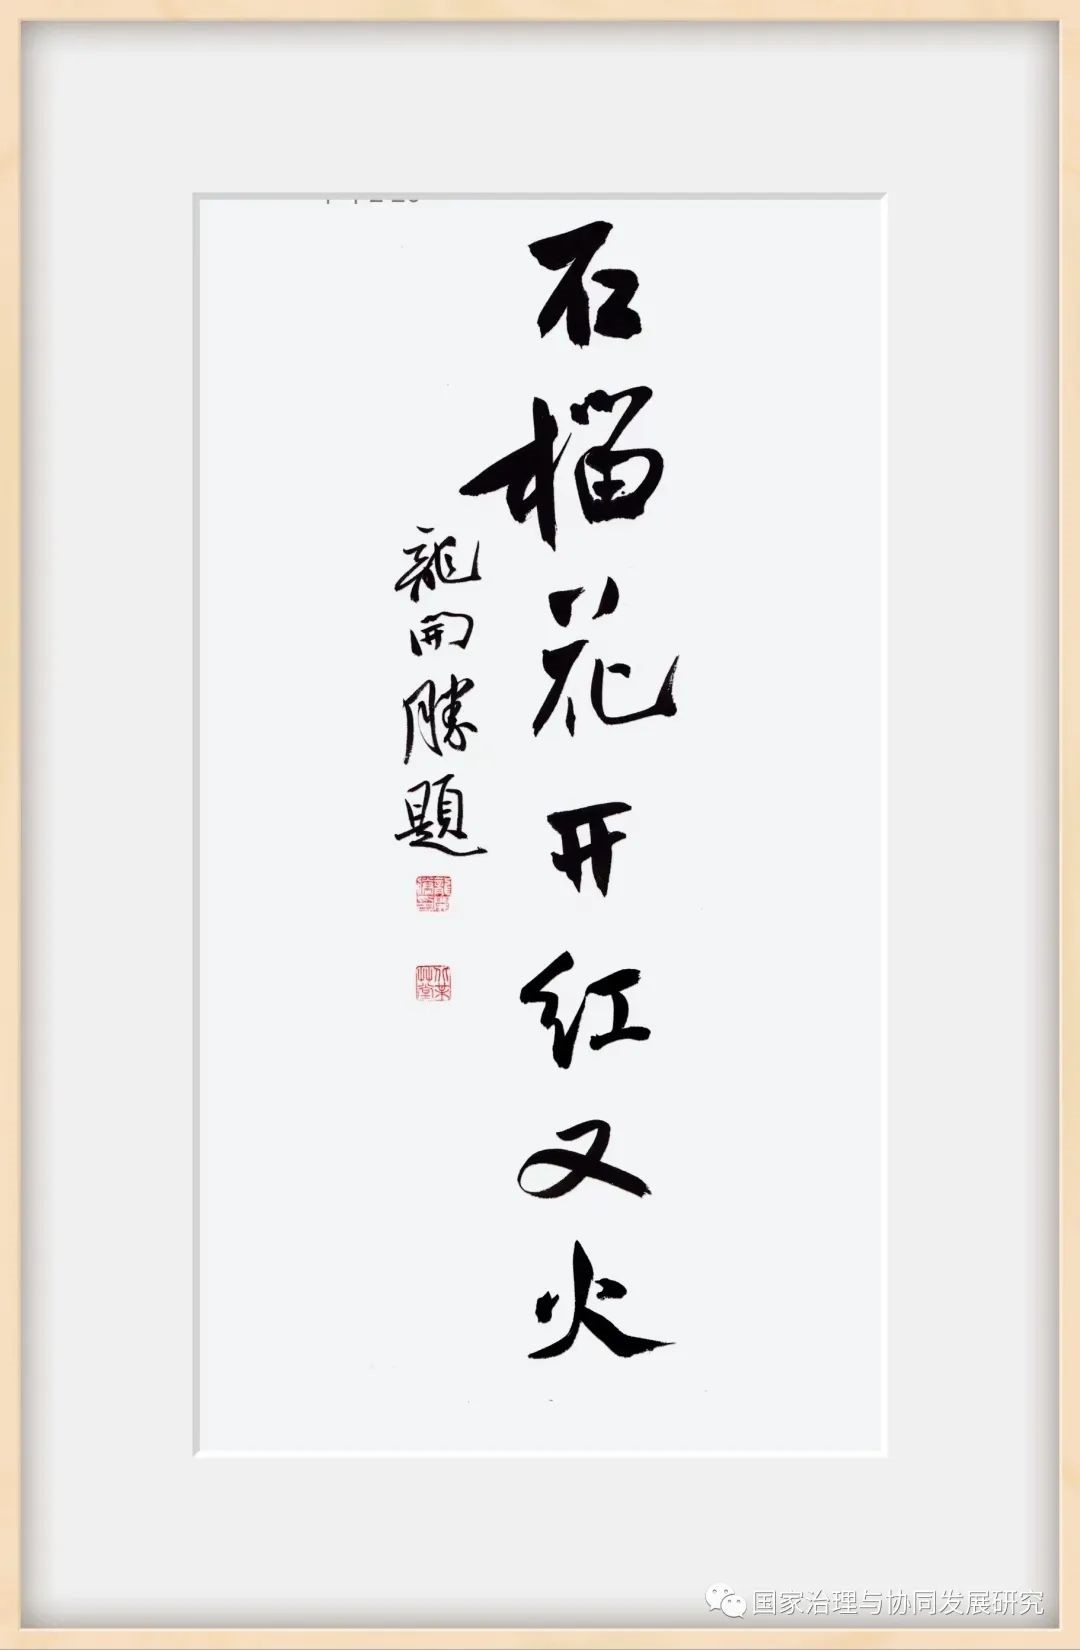 石榴花开红又火
龍開勝題
国家治理与协同发展研究